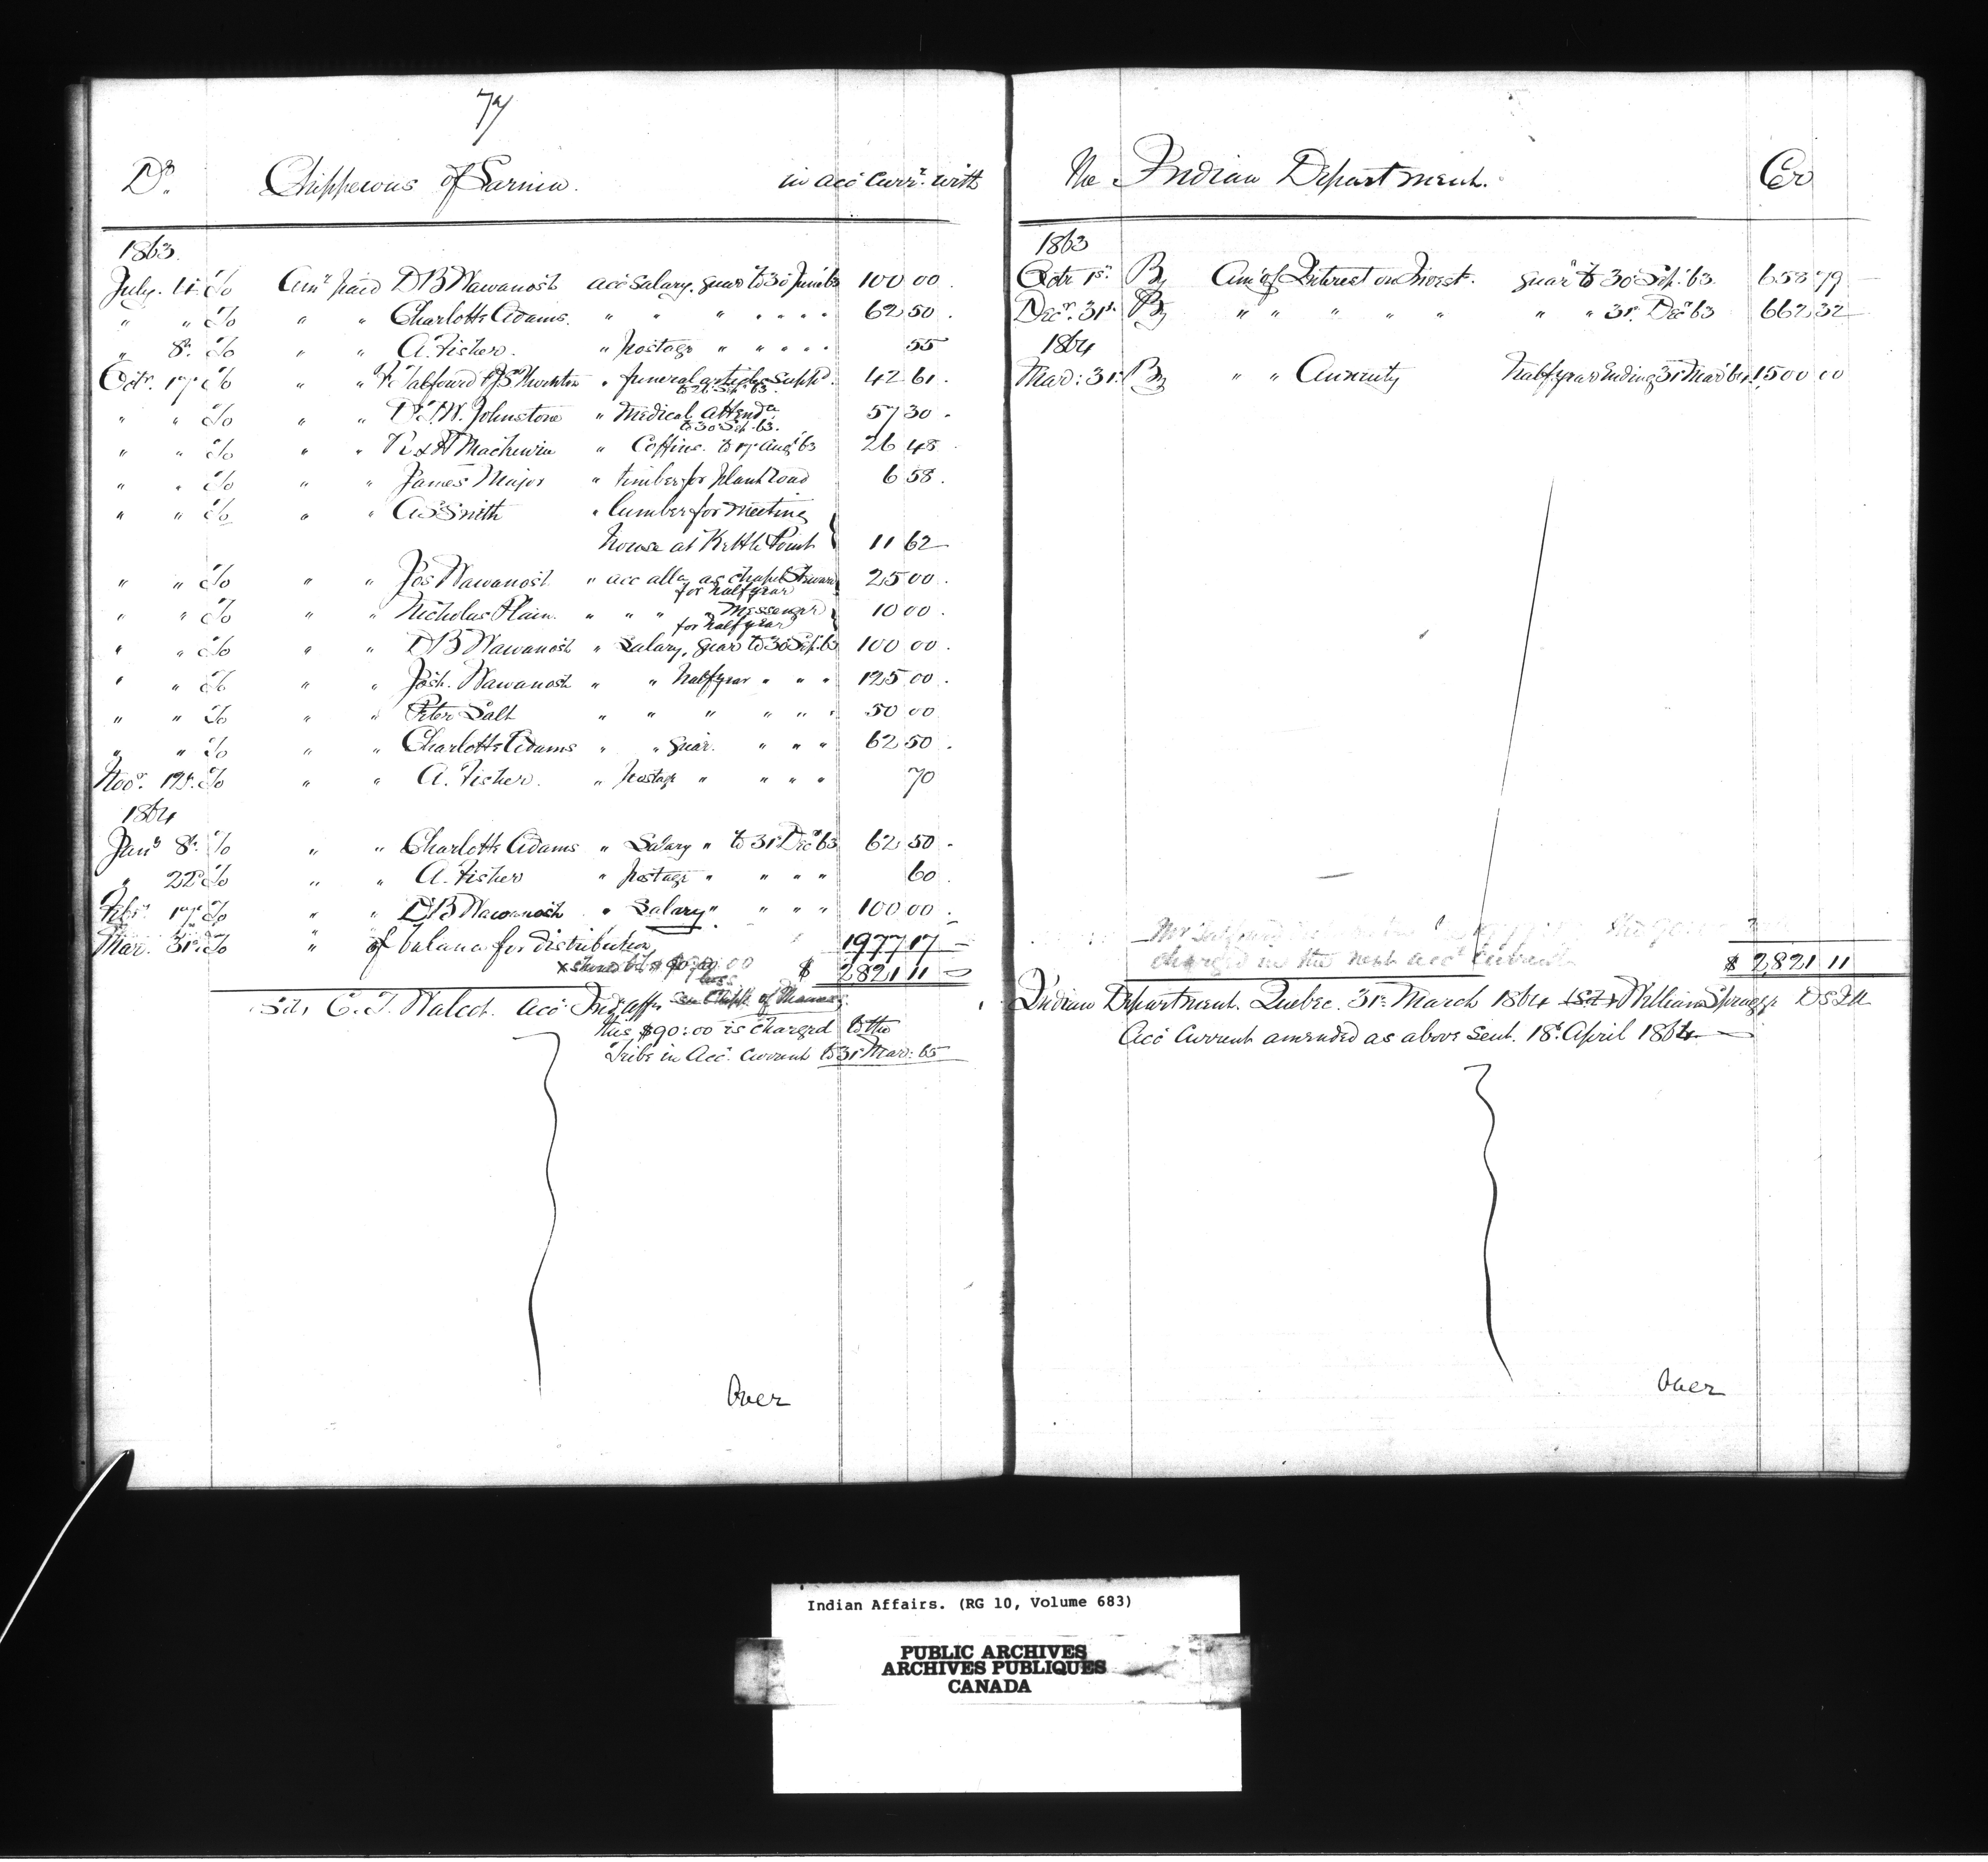 77
Dr. Chippewas of Sarnia. in acct Currt. with
1863.
July. 4 To Amt paid D B Wawanosh acct Salary. quar to 30 June 63 100 00
" " To " " Charlotte Adams. " " " " " " " 62 50
" 8th. To " " A. Fisher. " postage " " " " " 55
Octr. 17th To " " F. Talfourd & J S Thornton " funeral articles suppd. 42 61
to 26 Sept. 63.
" " To " " Dr. T.W. Johnstone " Medical Attendce 57 30
to 30 Sept. 63.
" " To " " R & H Mackewin " Coffins. to 17 Augt 63 26 48
" " To " " James Major " timber for plank road 6 58
" " To " " A S Smith " lumber for meeting
house at Kettle Point 11 62
" " To " " Jos Wawanosh " acc allce as Chapel Steward 25 00
for half year
" " To " " Nicholas Plain. " " " " Messenger 10 00
for half year
" " To " " D B Wawanosh " Salary, quar to 30 Sept. 63 100 00
" " To " " Josh. Wawanosh " " half year " " " 125 00
" " To " " Peter Salt " " " " " " 50 00
" " To " " Charlotte Adams " " quar. " " " 62 50
Novr. 19th. To " " A. Fisher. " postage " " " " 70
1864
Jany 8th. To " " Charlotte Adams " Salary " to 31st Decr 63 62 50
" 22d To " " A. Fisher " postage " " " " 60
Feby. 17th To " " D B Wawanosh " Salary " " " " 100 00
Mar. 31st To " of balance for distribution 1977 17
x should be $90.00 less $ 2821 11
C. T. Walcot. Acct Ind Affs see Chipps of Thames
this $90:00 is charged to the
Tribe in Acct. Current to 31st Mar: 65
Over
The Indian Department. Cr
1863
Octr 1st. By Amt of Interest on Invest. quar to 30 Sept. 63. 658 79
Decr. 31st. By " " " " " " " 31st. Decr 63 662 32
1864
Mar: 31st. By " " Annuity half year ending 31st Mar 64 1500 00
Mr Talfourd
charged in the next acct current
$ 2821 11
Indian Department. Quebec. 31st. March 1864 (Sd.) William Spragge D S I A
Acct Current amended as above sent. 18th. April 1864
Over
Indian Affairs. (RG 10, Volume 683)
PUBLIC ARCHIVES
ARCHIVES PUBLIQUES
CANADA